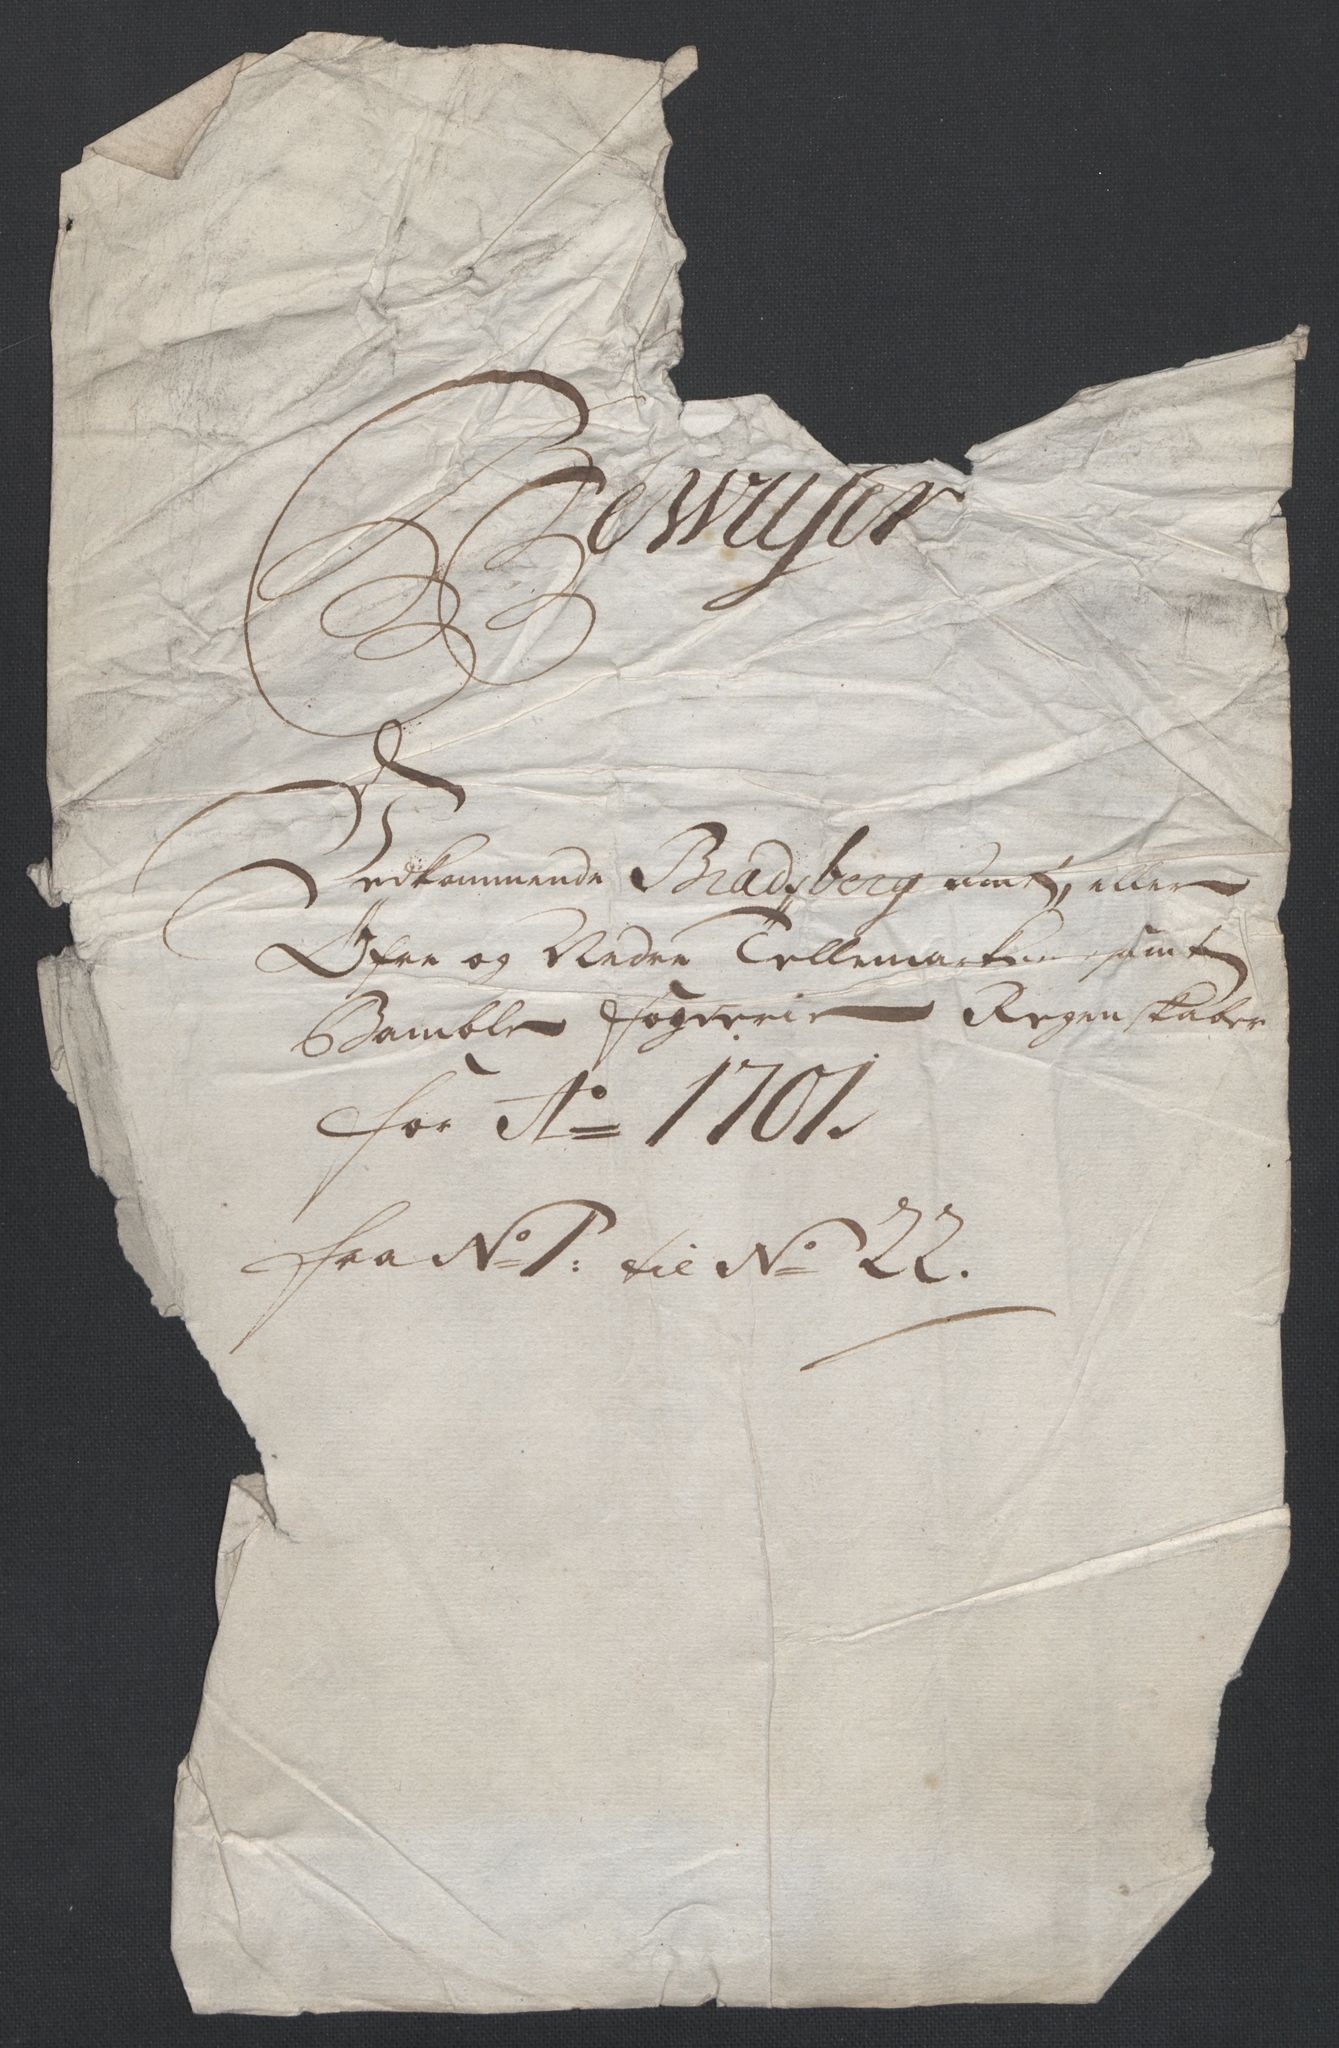 Bewiser
Vedkommende Bradsberg amt, eller
Øfre og Nedre Tellemarken samt
Bamble fogderie Regenskaber
for Ao 1701.
fra No 1: til No 22.